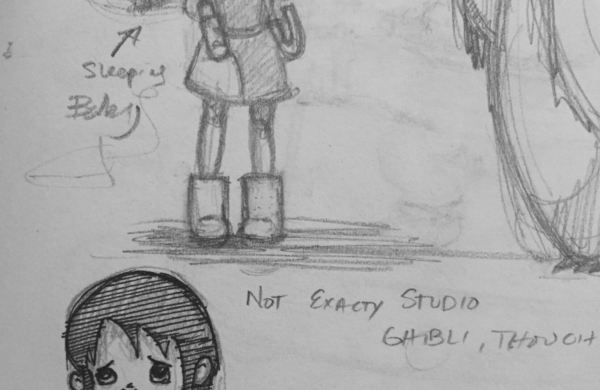 Sleeping
Baby
NOT EXACTY STUDIO
GHIBLI, THOUGH